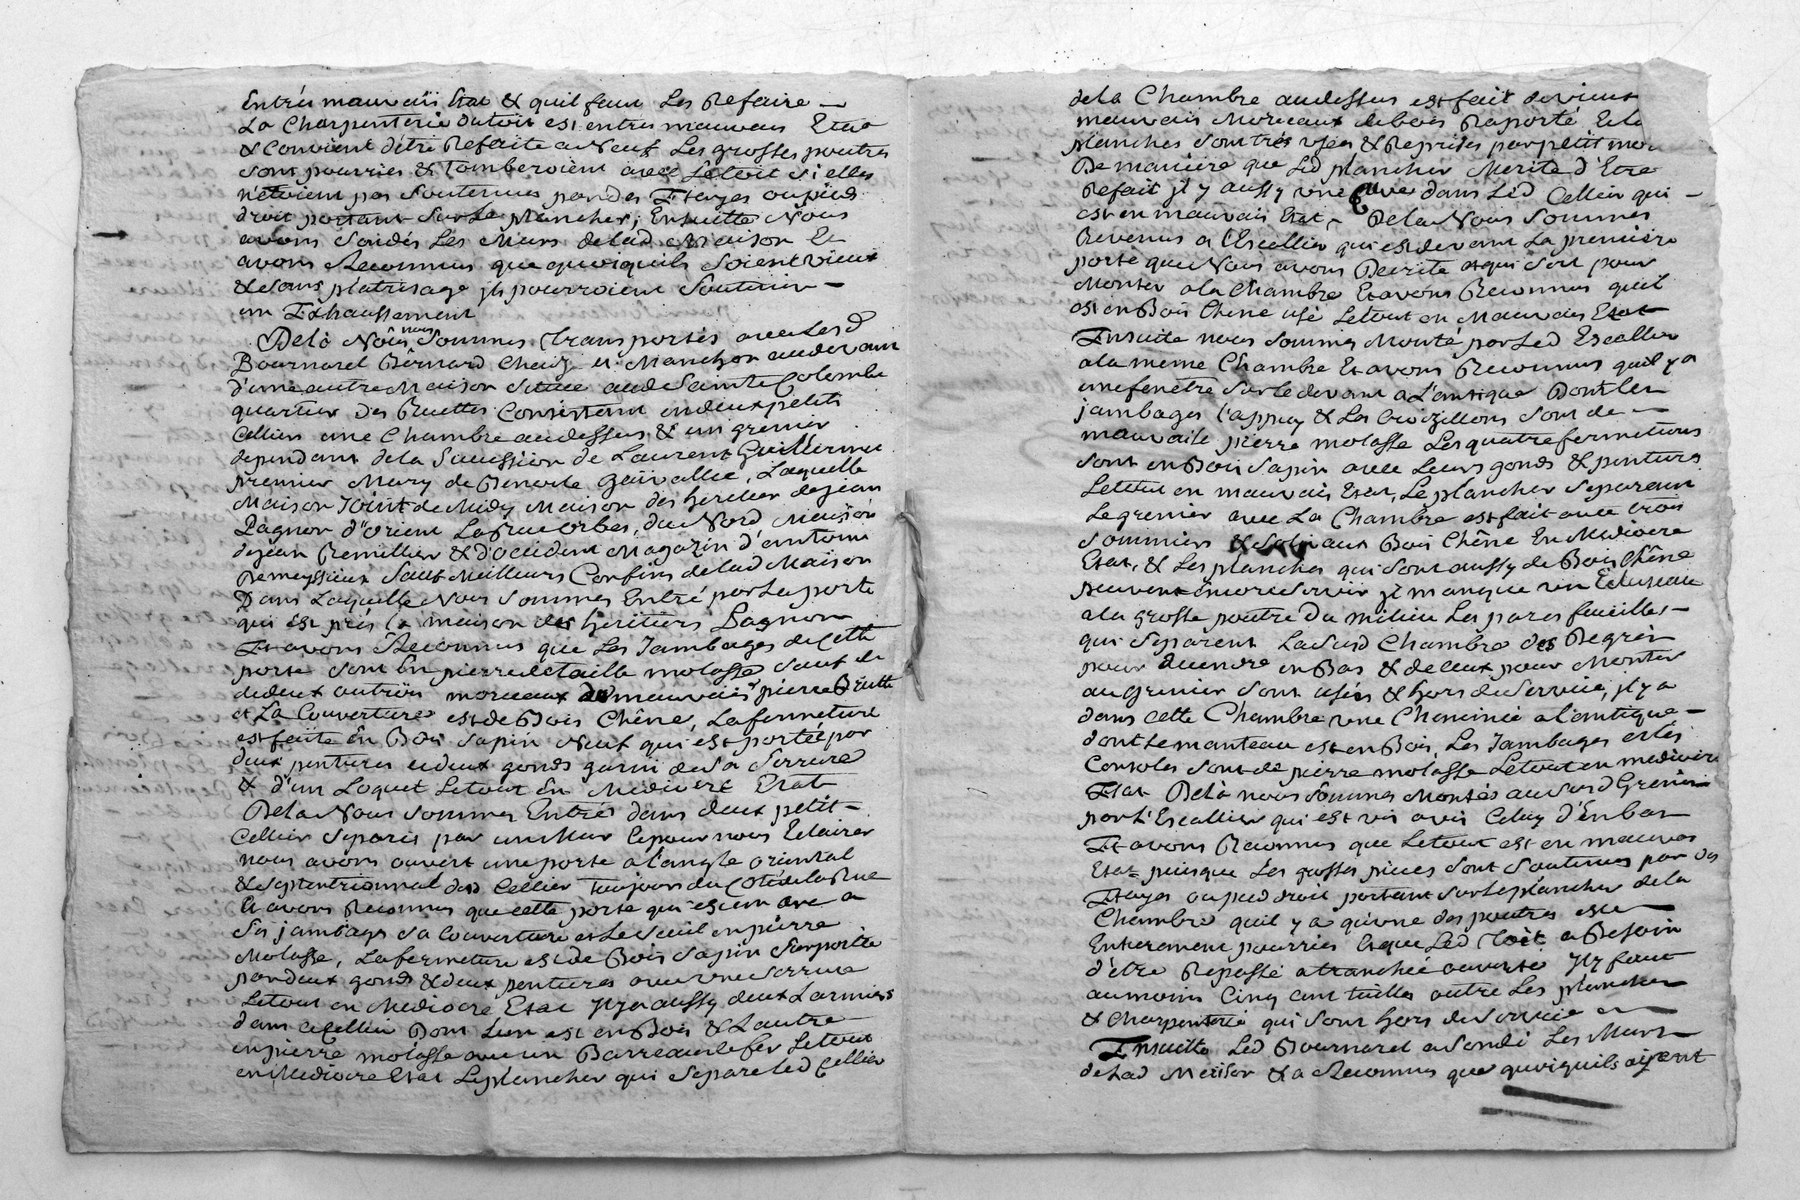 Entrés mauvaii Etat & quil faut Les Refaire —
La Charpenterie dutoit est entres mauvais Etat
& Convient d'être Refaite a Neuf Les grosses poutres
sont pourries & tomberoient avec Letoit si elles
n'etoient pas Soutenues pardes Etayes oupieds
droit portant Sur Le plancher, Ensuitte Nous
avons Sondés Les Murs delad Maison Et
avons Reconnus que quoiquils Soient vieux
& sans platrissage jls pourroient Soutenir —
un Exhaussement
Delà Nous nous Sommes transportés avec Lesd
Bournarel Bernard Chaiz et Manchon audevant
d'une autre Maison Située aud Sainte Colombe
quartier des Ruettes Consistant endeux petits
Celliers une Chambre audessus & un grenier
dependant dela Succession de Laurent Guillerme
premier Mary de Benoite Laquelle
Maison Joint de Midy Maison des heritier dejean
Pagnon d'orient La Rue orbes, du Nord Maison
dejean Remillier & d'occident Magazin d'antoine
Sauf Meilleurs Confins delad Maison
Dans Laquelle Nous Sommes Entré par La porte
qui est près la maison des héritiers Pagnon
Et avons Reconnus que Les Jambages de Cette
porte sont En pierre detaille molasse sauf de
dedeux outrois morceaux de mauvaise pierre Brutte
et La Couverture est de Bois Chêne, La fermeture
est faite en Bois Sapin Neuf qui est portée par
deux pentures et deux gonds garni de Sa Serrure
& d'un Loquet Letout En Mediocre Etat
Dela Nous Sommes Entrés dans deux petit —
Cellier Separés par un Mur Et pour nous Eclairer
nous avons ouvert une porte a l'angle oriental
& septentrionnal dud Cellier toujours du Coté de la Rue
Et avons Reconnus que cette porte qui est en arc a
Ses jambages Sa Couverture et Le Seuil en pierre
Molasse, La fermeture est de Bois Sapin Supportée
par deux gonds & deux pentures avec une Serrure
Letout en Mediocre Etat Jl y a aussy deux Larmiers
dans ce Cellier Dont L'un est en Bois & L'autre
en pierre molasse avec un Barreau de fer Letout
en Mediocre Etat Le plancher qui Separe Led Cellier
dela Chambre audessus est fait de vieux
mauvais Morceaux de bois Raporté Et le
planches sont très usées & Reprises par petit mor
De manière que Led plancher Merite d'Etre
Refait jl y aussy une Cuve dans Led Cellier qui —
est en mauvais Etat, Dela Nous Sommes
Revenus a l'Escallier qui est devant La première
porte que Nous avons Decrite et qui Sert pour
Monter a la Chambre Et avons Reconnus quil
est en Bois Chêne usé Letout en Mauvais Etat
Ensuite nous Sommes Monté par Led Escallier
a la meme Chambre Et avons Reconnus quil y a
une fenêtre Sur le devant a L'antique Dont les
jambages l'appuy & Les Croizillons Sont de —
mauvaise pierre molasse Les quatre fermetures
Sont en Bois Sapin avec Leurs gonds & pentures
Letout en mauvais Etat, Le plancher Separant
Le grenier avec La Chambre est fait avec trois
Sommiers & Soliveaux Bois Chêne En Mediocre
Etat, & Les planches qui Sont aussy de Bois Chêne
peuvent encore Servir jl manque un
a la grosse poutre du milieu Les pares feuilles —
qui Séparent Lasusd Chambre des Degrés
pour decendre en Bas & de Ceux pour Monter
au grenier Sont usées & hors de Service, jl y a
dans cette Chambre une Cheminée a l'antique —
dont Le manteau est en Bois, Les Jambages et les
Consoles Sont de pierre molasse Letout en mediocre
Etat Delà nous Sommes Montés au Susd Grenier
par L'Escallier qui est vis avis Celuy d'Enbas
Et avons Reconnus que Letout est en mauvais
Etat puisque Les grosses pieces Sont Soutenues par des
Etayes ou pied droit portant Sur Le plancher de la
Chambre quil y a qu'une des poutres est —
Entierement pourries Et que Led Toit a Besoin
d'être Repassé a tranchée ouverte Jl y faut
au moins Cinq cent tuilles outre Les planches
& Charpenterie qui Sont hors de Service —
Ensuitte Led Bournarel a Sondé Les Murs
delad Maison & a Reconnus que quoiquils ayent